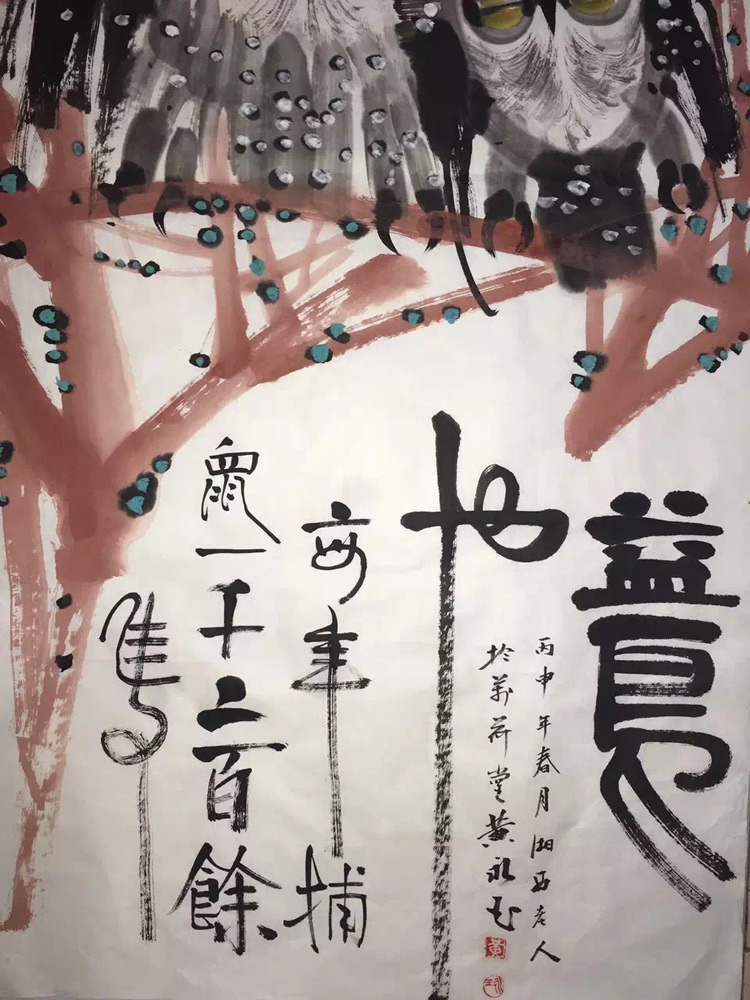 益鳥
也
每年捕
鼠一千二百餘
隻
丙申年春月湘西老人
於萬荷堂黃永玉
黃